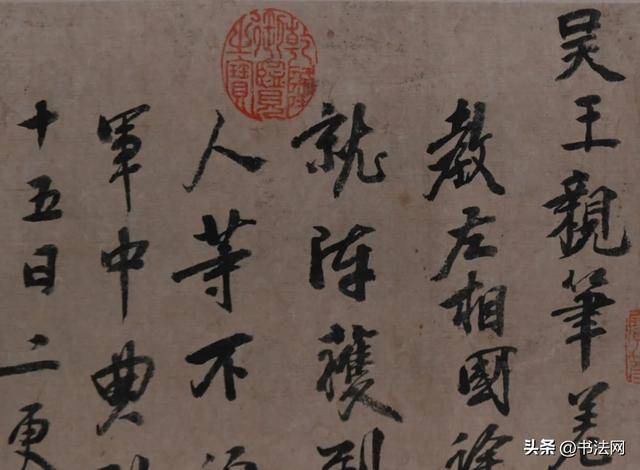 吴王親筆差
教左相國徐
就陣獲到
人等不須
軍中典刑
十五日二更
乾隆御覽之寶
头条 @书法网